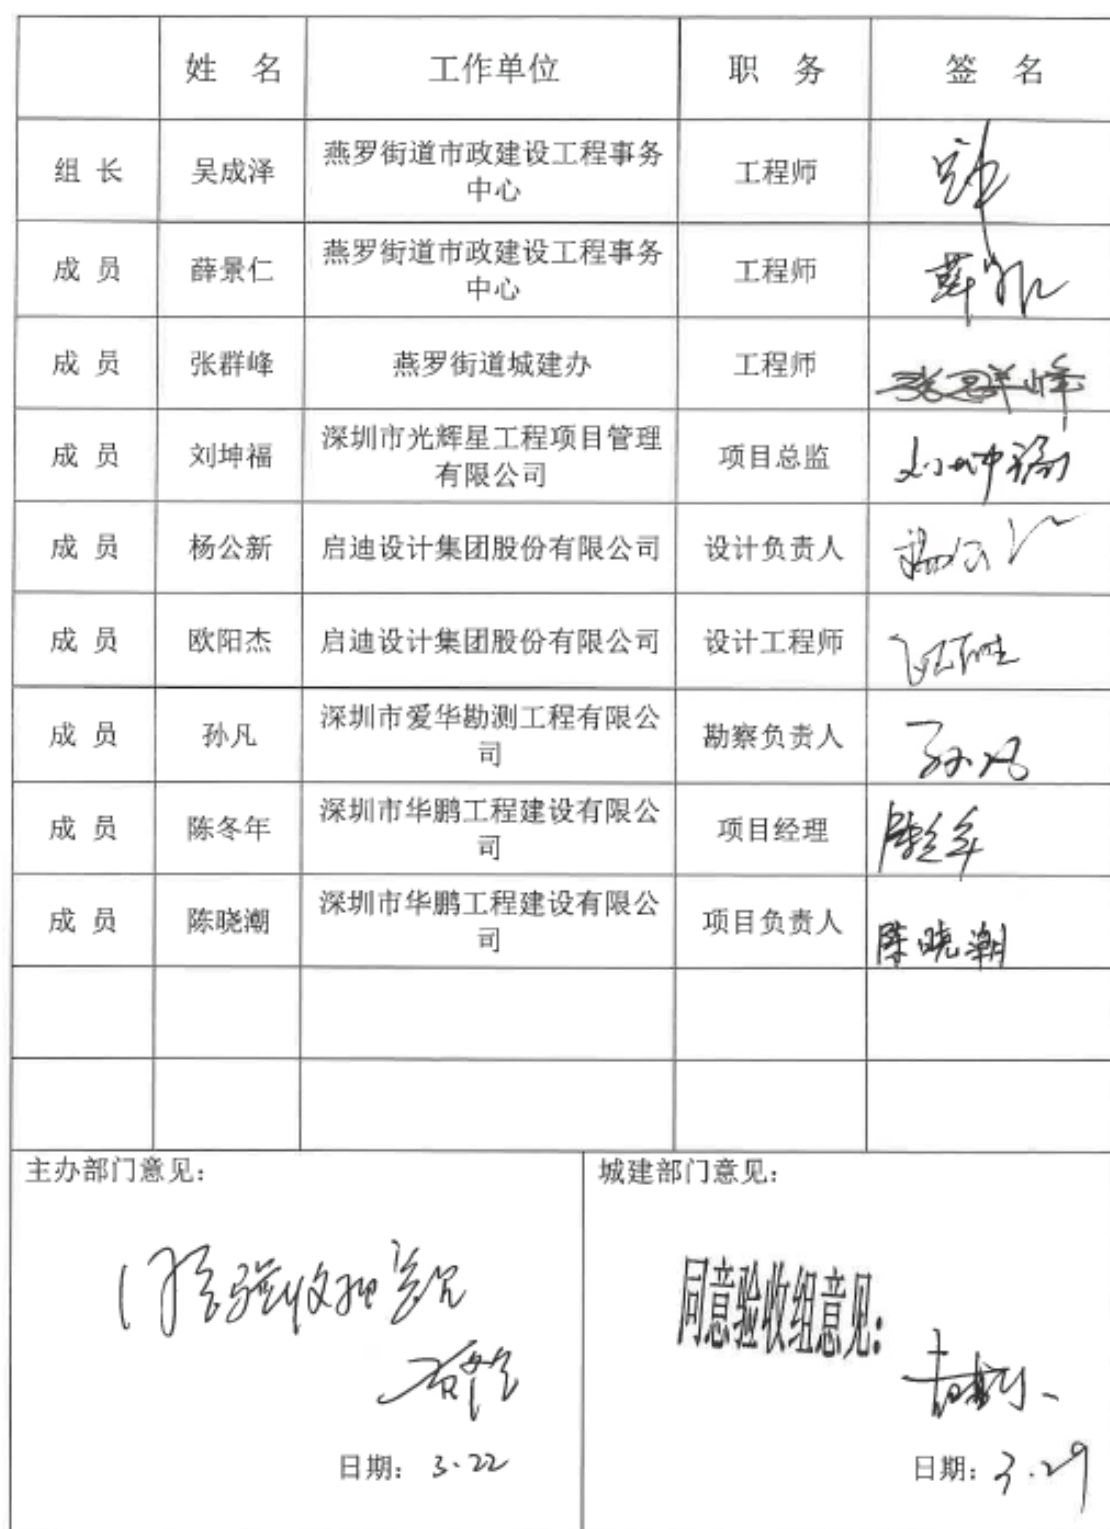 姓 名 工作单位 职 务 签 名
组 长 吴成泽 燕罗街道市政建设工程事务 工程师
中心
成 员 薛景仁 燕罗街道市政建设工程事务 工程师
中心
成 员 张群峰 燕罗街道城建办 工程师 张群峰
成 员 刘坤福 深圳市光辉星工程项目管理 项目总监 刘坤福
有限公司
成 员 杨公新 启迪设计集团股份有限公司 设计负责人
成 员 欧阳杰 启迪设计集团股份有限公司 设计工程师
成 员 孙凡 深圳市爱华勘测工程有限公 勘察负责人 孙凡
司
成 员 陈冬年 深圳市华鹏工程建设有限公 项目经理 陈冬年
司
成 员 陈晓潮 深圳市华鹏工程建设有限公 项目负责人 陈晓潮
司
主办部门意见:
同意验收组意见
日期: 3.22
城建部门意见:
同意验收组意见:
日期: 3.29